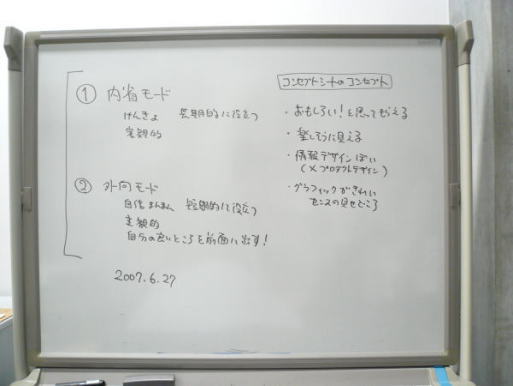 ① 内省モード
けんきょ 長期的に役立つ
客観的
② 外向モード
自信まんまん 短期的に役立つ
主観的
自分の良いところを前面に出す!
2007.6.27
コンセプトシートのコンセプト
・おもしろい!と思ってもらえる
・楽しそうに見える
・情報デザインぽい
(×プロダクトデザイン)
・グラフィックがきれい
センスの見せどころ